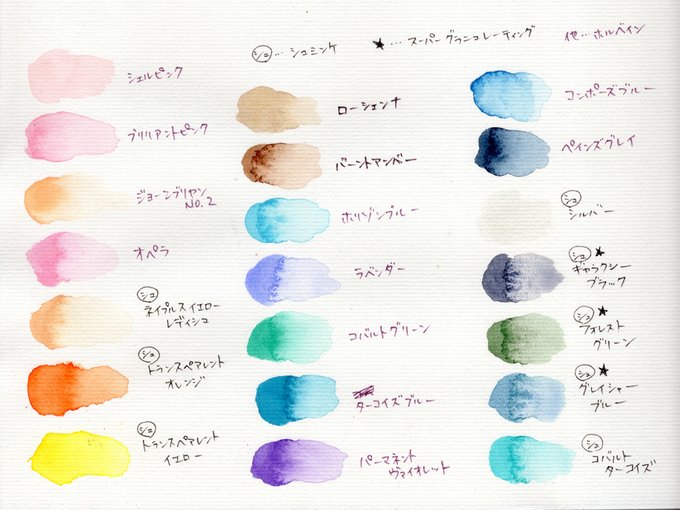 シュ…シュミンケ ★…スーパーグラニュレーティング 他…ホルベイン
シェルピンク
ブリリアントピンク
ジョーンブリヤン
NO.2
オペラ
シュ
ネイプルスイエロー
レディシュ
シュ
トランスペアレント
オレンジ
シュ
トランスペアレント
イエロー
ローシェンナ
バーントアンバー
ホリゾンブルー
ラベンダー
コバルトグリーン
ターコイズブルー
パーマネント
ヴァイオレット
コンポーズブルー
ペインズグレイ
シュ
シルバー
シュ ★
ギャラクシー
ブラック
シュ ★
フォレスト
グリーン
シュ ★
グレイシャー
ブルー
シュ
コバルト
ターコイズ